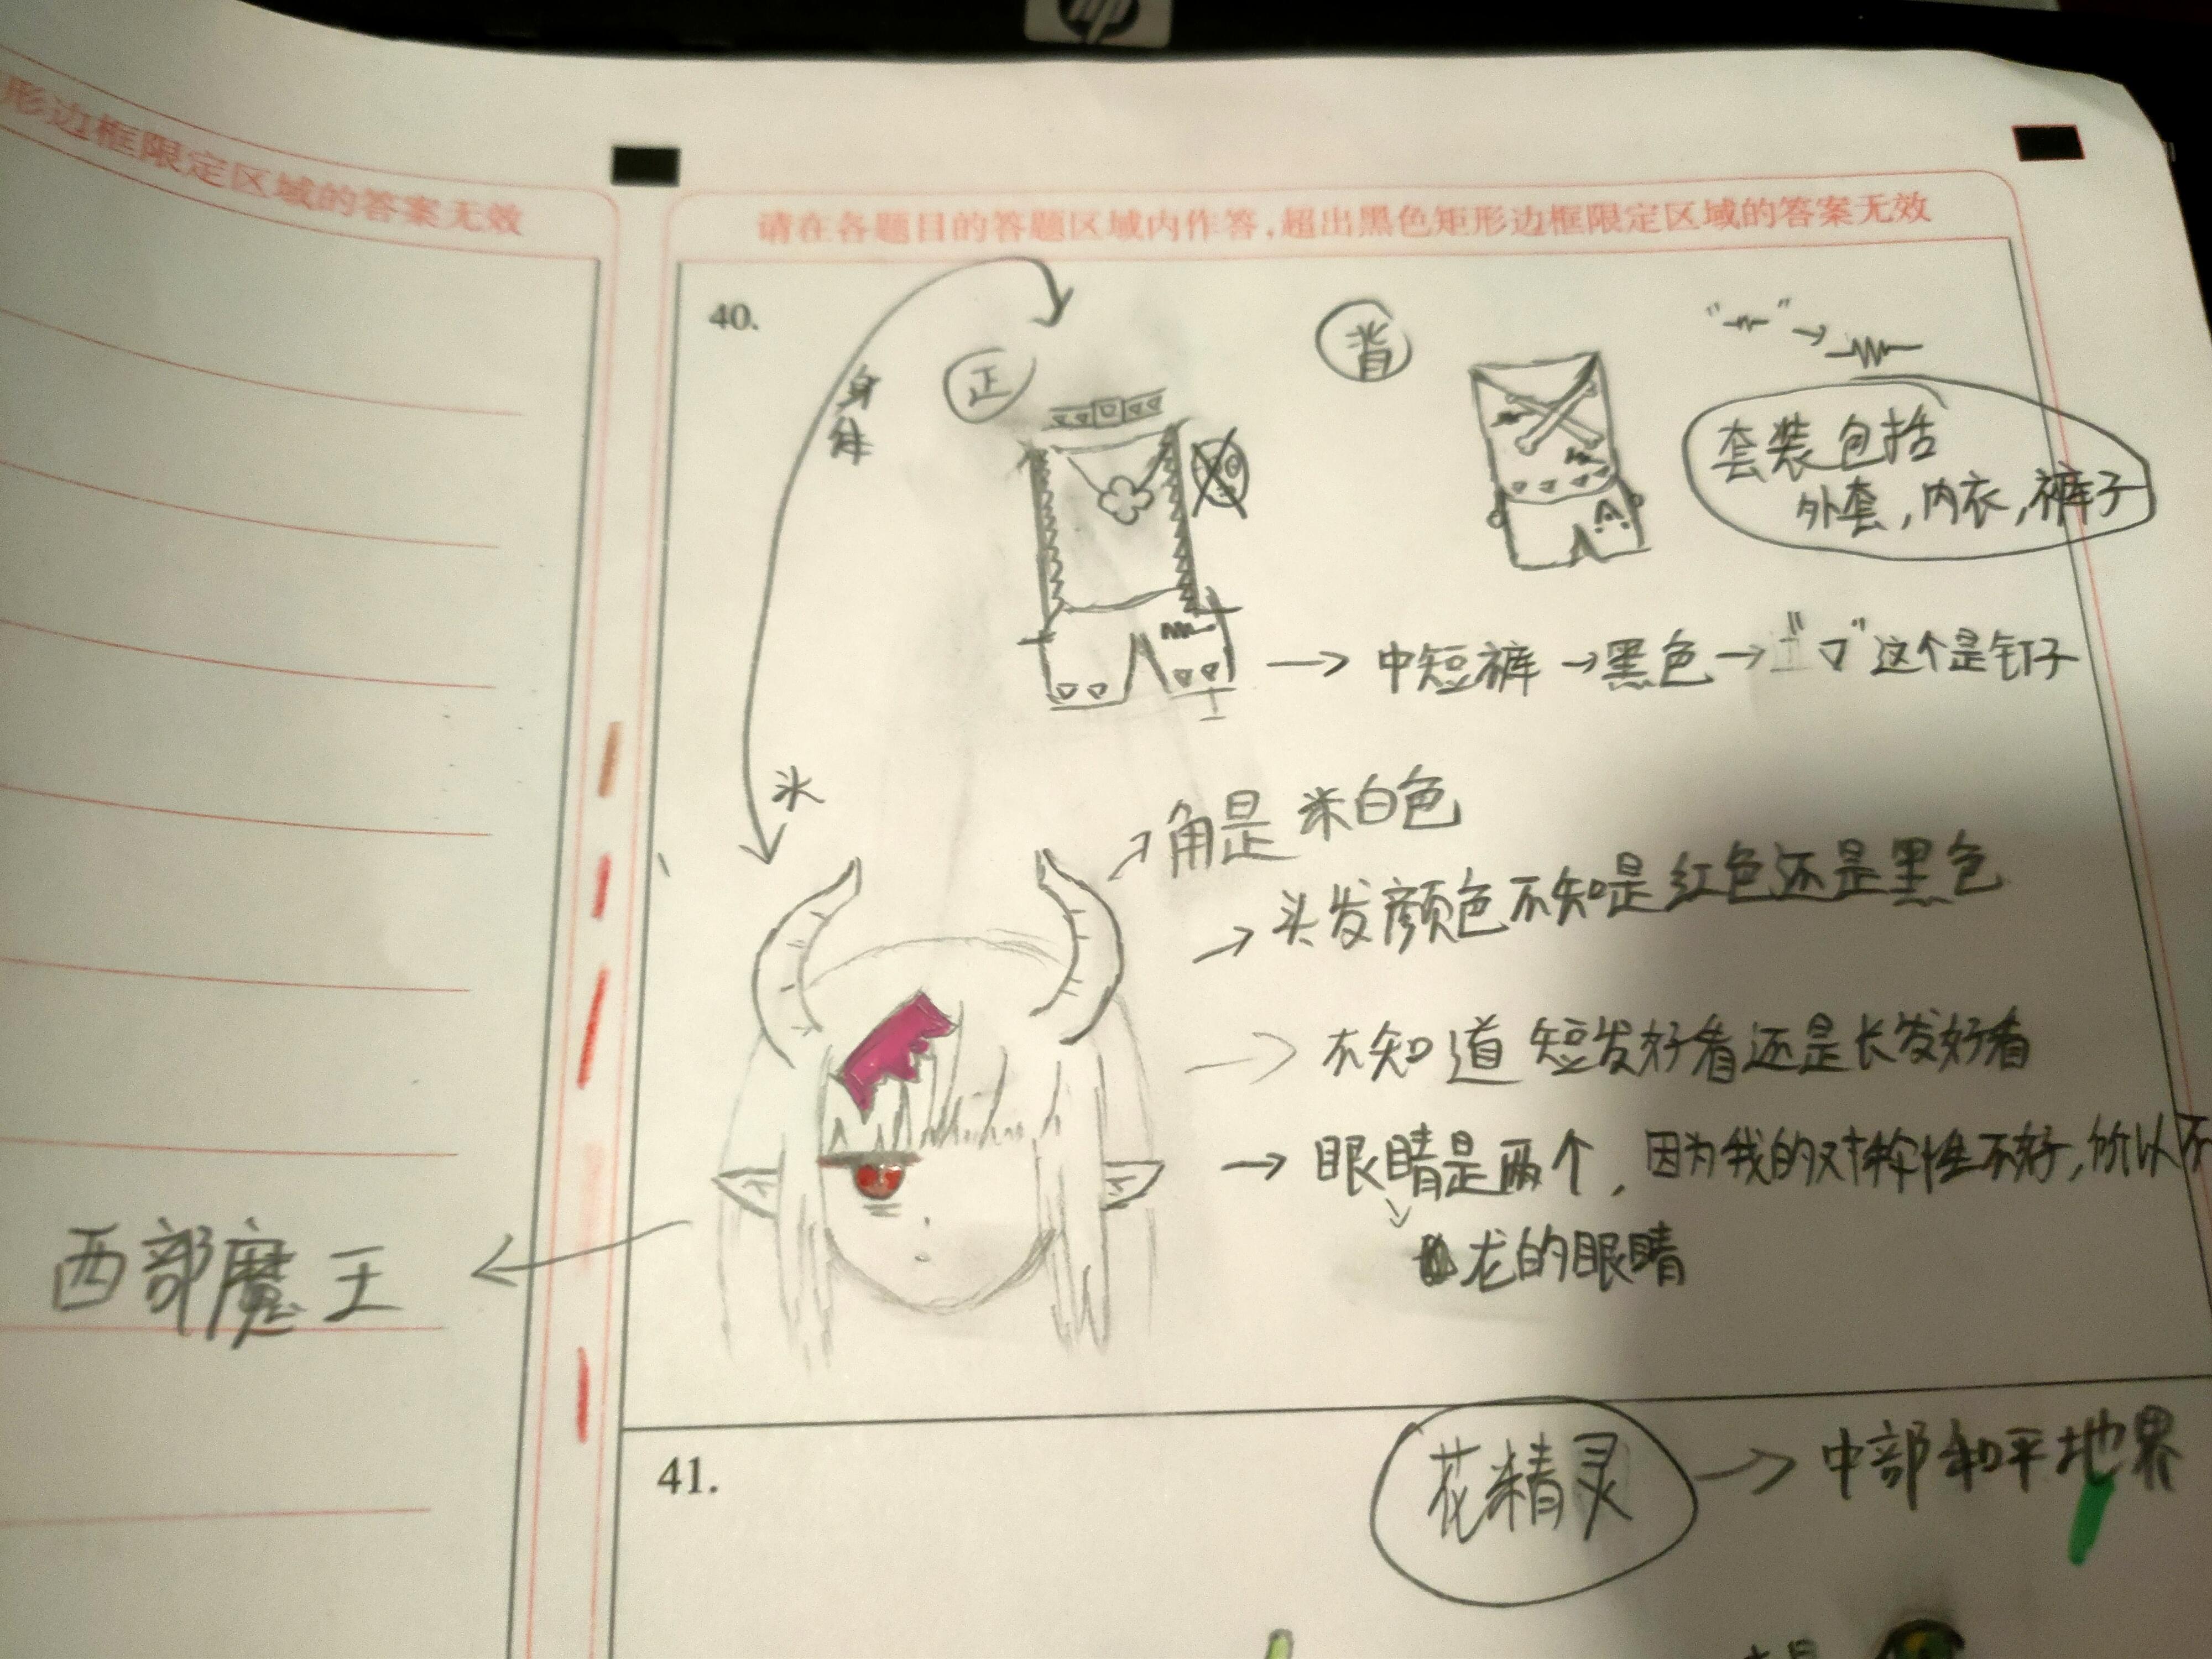 hp
形边框限定区域的答案无效
请在各题目的答题区域内作答,超出黑色矩形边框限定区域的答案无效
40.
正
背
身体
套装包括
外套,内衣,裤子
→中短裤→黑色→"▽"这个是钉子
头
角是米白色
头发颜色不知是红色还是黑色
不知道 短发好看还是长发好看
眼睛是两个,因为我的对称性不好,所以不
龙的眼睛
西部魔王
41.
花精灵→中部和平地界